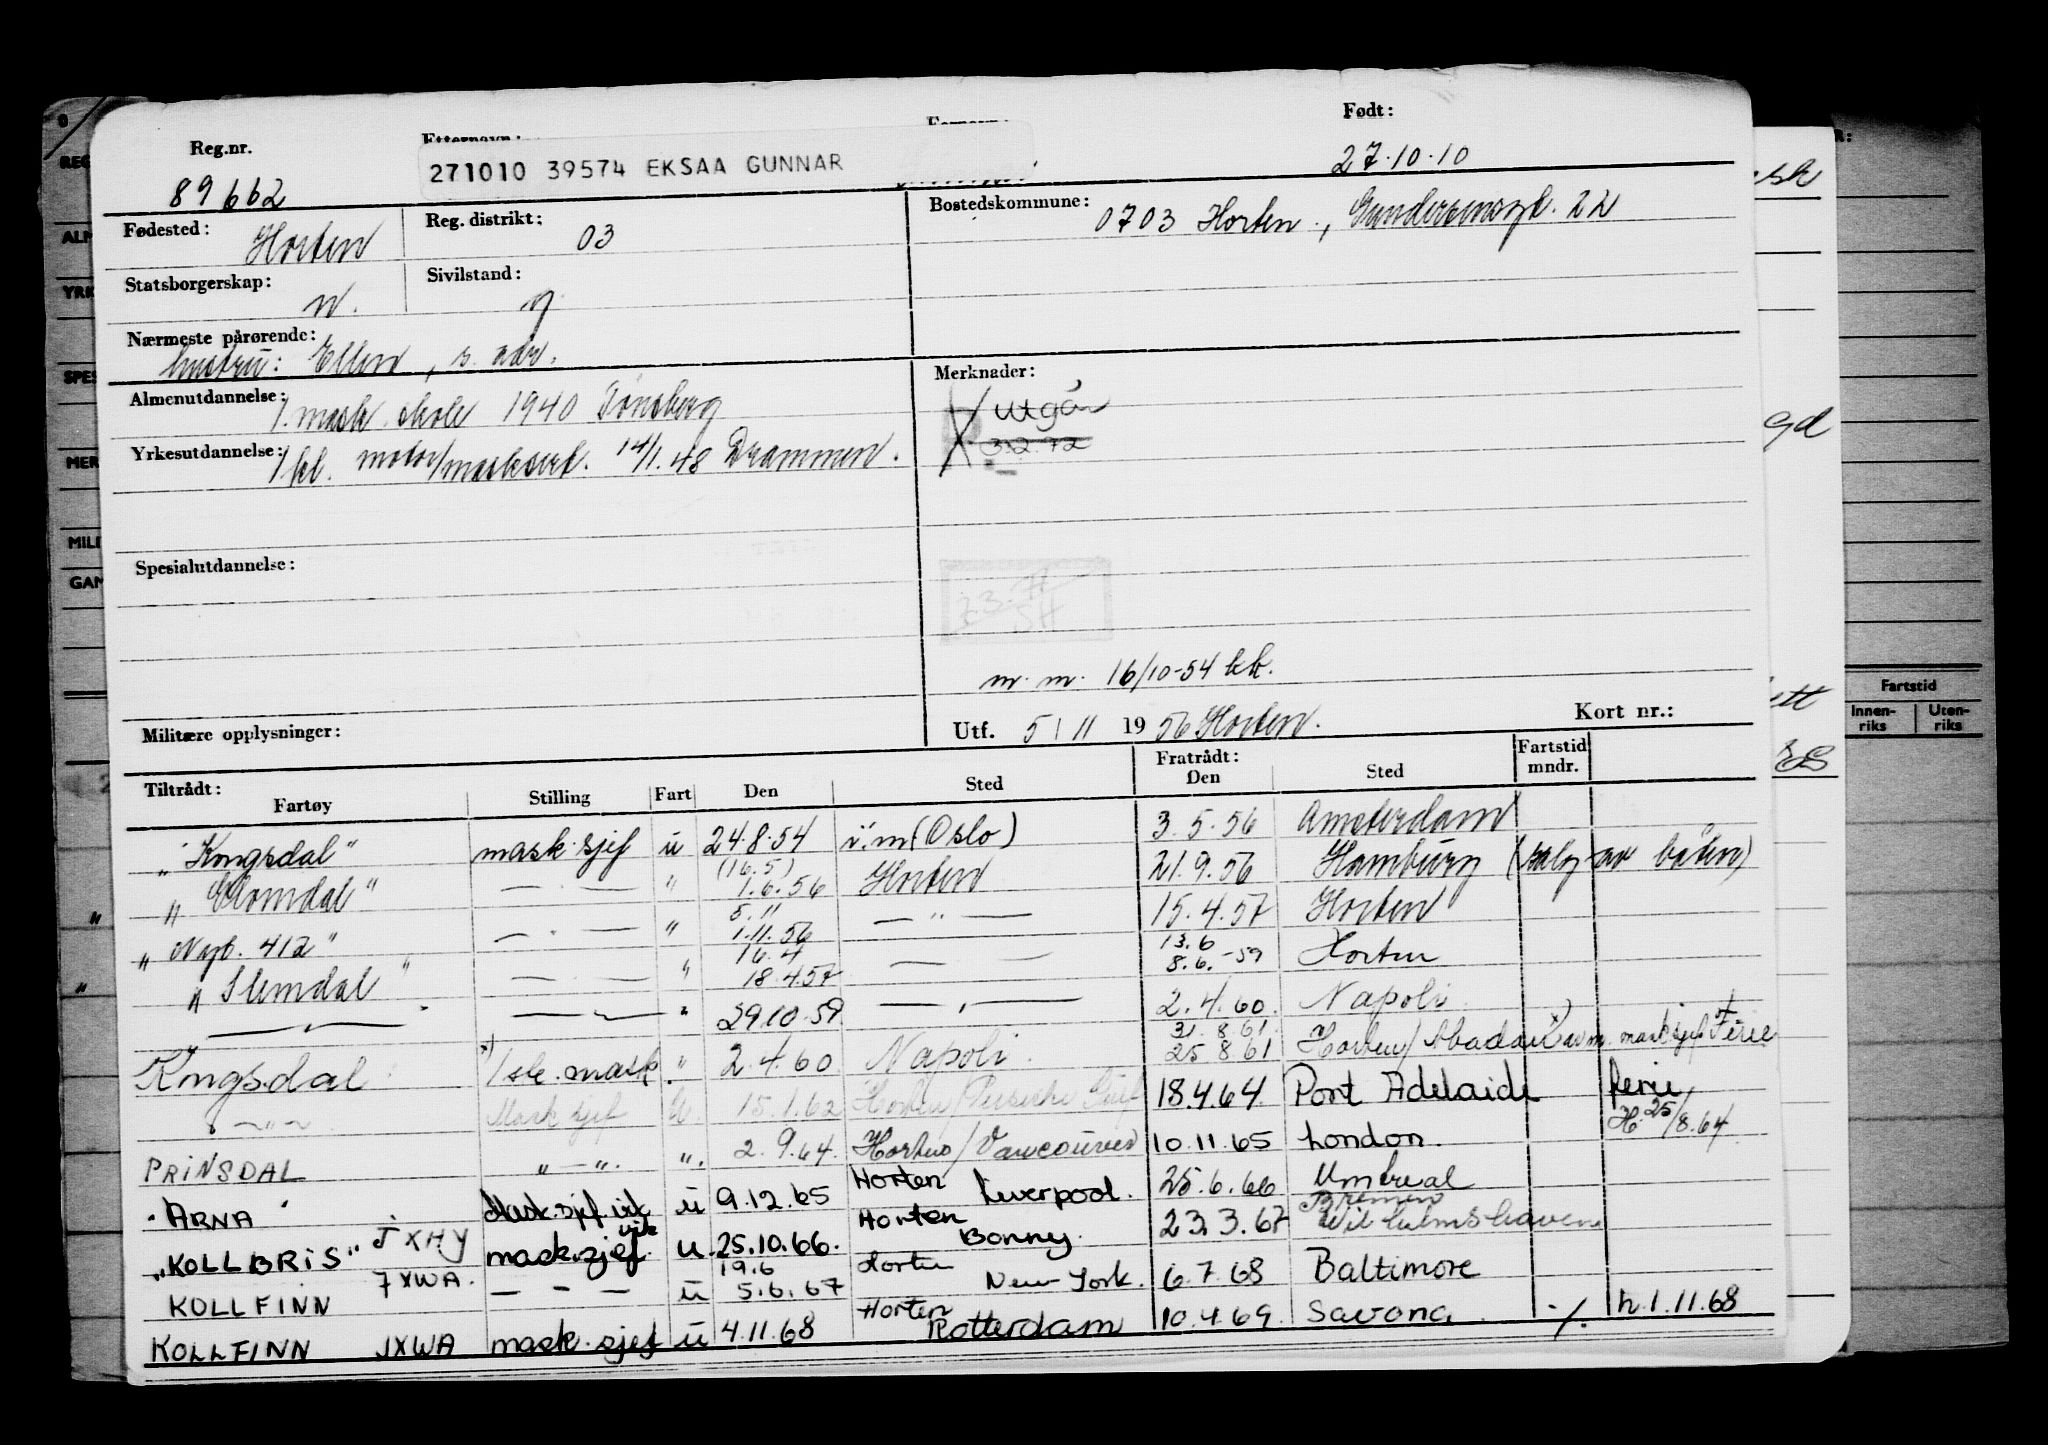 Reg.nr.
Etternavn:
Fornavn:
Født:
89662
271010 39574 EKSAA GUNNAR
27.10.10
Fødested: Horten
Reg. distrikt: 03
Bostedskommune: 0703 Horten, 22
Statsborgerskap: n.
Sivilstand: g
Nærmeste pårørende: hustru: Ellen, s. adr.
Almenutdannelse: 1. mask. skole 1940 Tønsberg
Merknader: Utgår
3.2.72
Yrkesutdannelse: 1 kl. motor/masksert. 14/1.48 Drammen.
Spesialutdannelse:
m. m. 16/10-54 kk.
Militære opplysninger:
Utf. 5/11 1956 Horten.
Kort nr.:
Tiltrådt: Fartøy Stilling Fart Den Sted Fratrådt: Den Sted Fartstid mndr.
"Kongsdal" mask.sjef u 24.8.54 v.m (Oslo) 3.5.56 Amsterdam
"Glomdal" — . — " (16.5) 1.6.56 Horten 21.9.56 Hamburg (salg av båten)
"Nyb. 412" — . — " 5.11 1.11.56 — " — 15.4.57 Horten
"Slemdal" — — " 16.4 18.4.57 — — 13.6 8.6.-59 Horten
— " — — " — " 29.10.59 — " — 2.4.60 Napoli
Kongsdal x) 1ste. mask. " 2.4.60 Napoli. 31.8.61 25.8.61 Horten/Abadan x) av m. masksjef Ferie
— " — Mask sjef U. 15.1.62 Horten/Persiske Gulf 18.4.64 Port Adelaide ferie,
H. 25/8.64
PRINSDAL " — ". ". 2.9.64. Horten/Vancouver 10.11.65 London.
"ARNA" Mask.sjef vik u 9.12.65 Horten Liverpool. 25.6.66 Montreal
"KOLLBRIS" JXHY mask.sjef vik u. 25.10.66. Horten Bonny. 23.3.67 Bremen Wilhelmshaven
KOLLFINN JXWA. — — — u 19.6 5.6.67 Horten New York. 6.7.68 Baltimore
KOLLFINN JXWA mask.sjef u 4.11.68 Horten Rotterdam 10.4.69. Savona ./. h.1.11.68
Fartstid
Innen-riks
Uten-riks